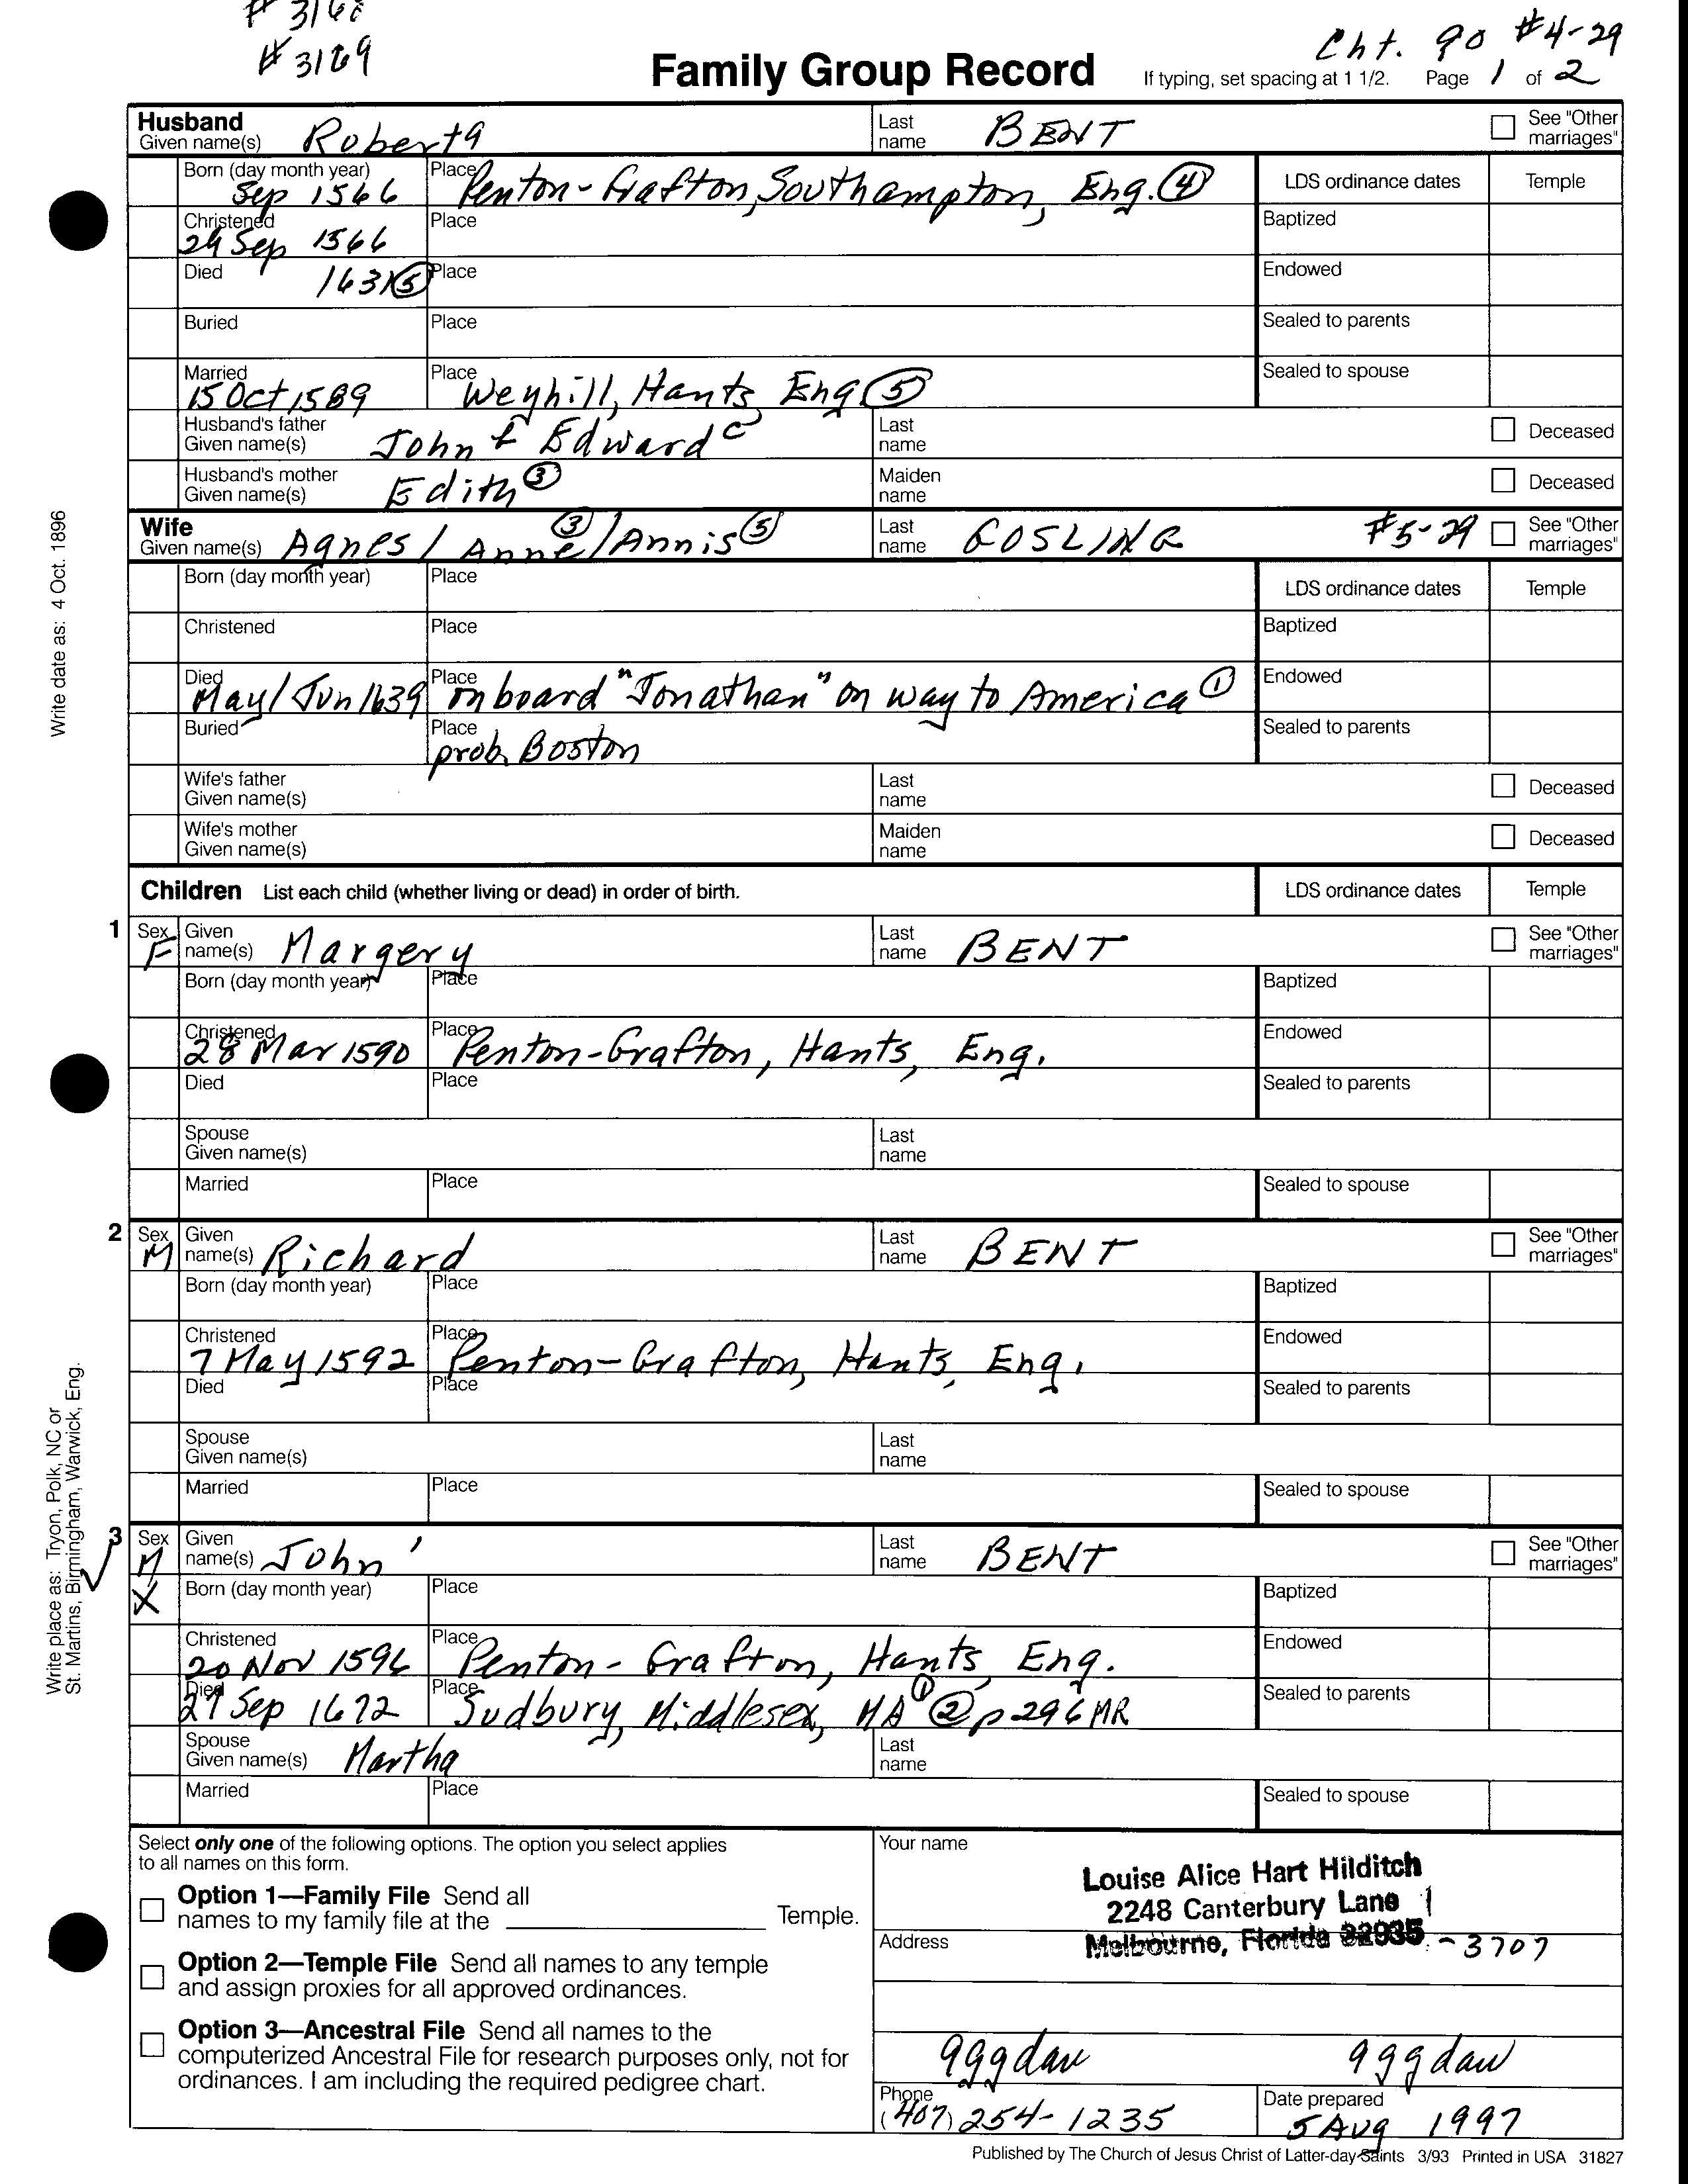 # 3168
# 3169
Cht. 90 #4-29
Family Group Record If typing, set spacing at 1 1/2. Page 1 of 2
Husband
Given name(s) Robert 9 Last name BENT See "Other marriages"
Born (day month year) Sep 1566 Place Penton-Grafton, Southampton, Eng. 4 LDS ordinance dates Temple
Christened 29 Sep 1566 Place Baptized
Died 1631 5 Place Endowed
Buried Place Sealed to parents
Married 15 Oct 1589 Place Weyhill, Hants, Eng 5 Sealed to spouse
Husband's father Given name(s) John & Edward C Last name Deceased
Husband's mother Given name(s) Edith 3 Maiden name Deceased
Wife
Given name(s) Agnes / Anne 3 / Annis 5 Last name GOSLING #5-29 See "Other marriages"
Born (day month year) Place LDS ordinance dates Temple
Christened Place Baptized
Died May/Jun 1639 Place on board "Jonathan" on way to America 1 Endowed
Buried Place prob. Boston Sealed to parents
Wife's father Given name(s) Last name Deceased
Wife's mother Given name(s) Maiden name Deceased
Children List each child (whether living or dead) in order of birth. LDS ordinance dates Temple
1 Sex F Given name(s) Margery Last name BENT See "Other marriages"
Born (day month year) Place Baptized
Christened 28 Mar 1590 Place Penton-Grafton, Hants, Eng. Endowed
Died Place Sealed to parents
Spouse Given name(s) Last name
Married Place Sealed to spouse
2 Sex M Given name(s) Richard Last name BENT See "Other marriages"
Born (day month year) Place Baptized
Christened 7 May 1592 Place Penton-Grafton, Hants, Eng. Endowed
Died Place Sealed to parents
Spouse Given name(s) Last name
Married Place Sealed to spouse
3 Sex M Given name(s) John Last name BENT See "Other marriages"
X Born (day month year) Place Baptized
Christened 20 Nov 1596 Place Penton-Grafton, Hants, Eng. Endowed
Died 27 Sep 1672 Place Sudbury, Middlesex, MA 1 2 p 296 MR Sealed to parents
Spouse Given name(s) Martha Last name
Married Place Sealed to spouse
Select only one of the following options. The option you select applies
to all names on this form.
Option 1—Family File Send all
names to my family file at the Temple.
Option 2—Temple File Send all names to any temple
and assign proxies for all approved ordinances.
Option 3—Ancestral File Send all names to the
computerized Ancestral File for research purposes only, not for
ordinances. I am including the required pedigree chart.
Your name
Louise Alice Hart Hilditch
2248 Canterbury Lane
Address Melbourne, Florida 32935-3707
9ggdau 9ggdau
Phone (407) 254-1235 Date prepared 5 Aug 1997
Published by The Church of Jesus Christ of Latter-day Saints 3/93 Printed in USA 31827
Write date as: 4 Oct. 1896
Write place as: Tryon, Polk, NC or
St. Martins, Birmingham, Warwick, Eng.